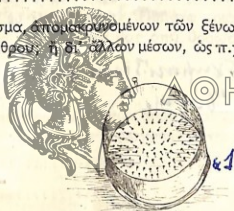 σμα, ἀπομακρυνομένων τῶν ξένω
θρου; ἢ δι᾽ ἄλλων μέσων, ὡς π.χ
ΑΘΗ
&1